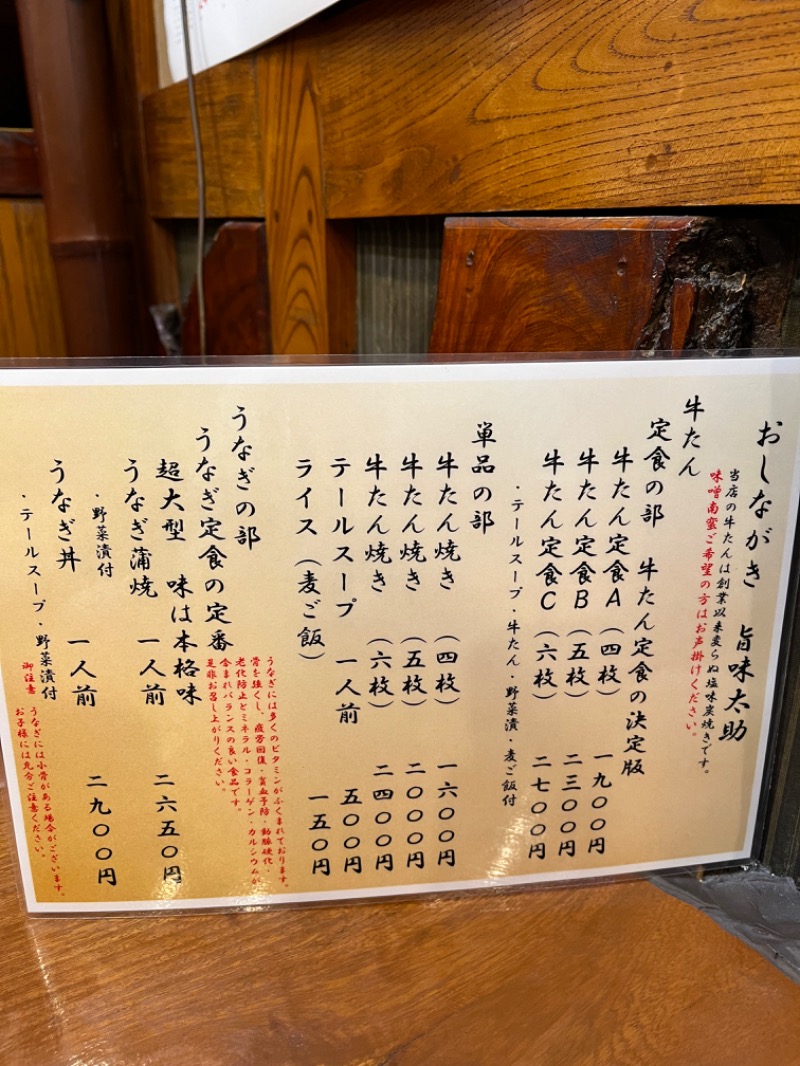 おしながき 旨味太助
当店の牛たんは創業以来変らぬ塩味炭焼きです。
味噌南蛮ご希望の方はお声掛けください。
牛たん
定食の部 牛たん定食の決定版
牛たん定食A（四枚） 一九〇〇円
牛たん定食B（五枚） 二三〇〇円
牛たん定食C（六枚） 二七〇〇円
・テールスープ・牛たん・野菜漬・麦ご飯付
単品の部
牛たん焼き（四枚） 一六〇〇円
牛たん焼き（五枚） 二〇〇〇円
牛たん焼き（六枚） 二四〇〇円
テールスープ 一人前 五〇〇円
ライス（麦ご飯） 一五〇円
うなぎには多くのビタミンがふくまれております。
骨を強くし、疲労回復・貧血予防・動脈硬化・
老化防止とミネラル・コラーゲン・カルシウムが
含まれバランスの良い食品です。
是非お召し上がりください。
うなぎの部
うなぎ定食の定番
超大型 味は本格味
うなぎ蒲焼 一人前 二六五〇円
・野菜漬付
うなぎ丼 一人前 二九〇〇円
・テールスープ・野菜漬付
御注意 うなぎには小骨がある場合がございます。
お子様には充分ご注意ください。